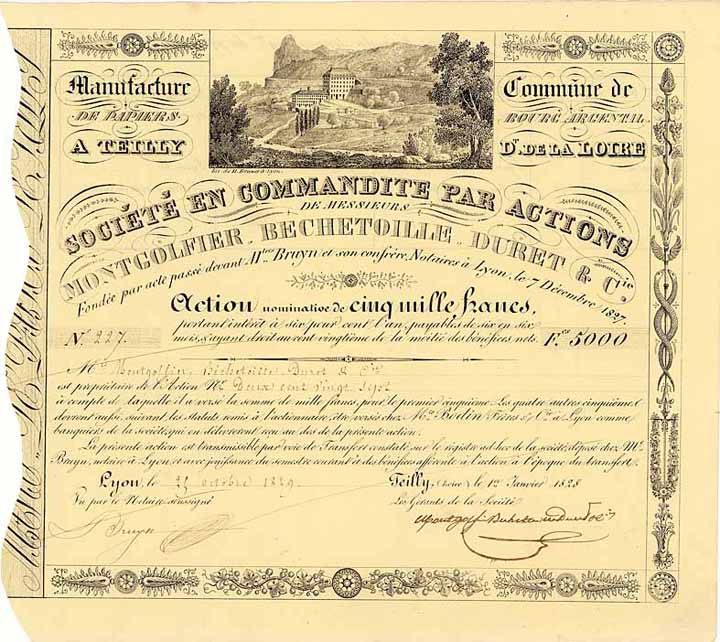 Manufacture
DE PAPIERS
A TEILLY
Commune de
BOURG ARGENTAL
Dt. DE LA LOIRE
SOCIÉTÉ EN COMMANDITE PAR ACTIONS
DE MESSIEURS
MONTGOLFIER, BECHETOILLE, DURET & Cie.
Fondée par acte passé devant Mtres Bruyn et son confrère, Notaires à Lyon, le 7 Décembre 1827.
Action nominative de cinq mille francs,
portant intérêt à six pour cent l'an, payables de six en six
mois, & ayant droit au cent vingtième de la moitié des bénéfices nets.
No. 227. Fcs 5000
Mrs Montgolfier, Bechetoille, Duret & Cie
est propriétaire de l'Action No. Deux cent vingt sept
à compte de laquelle il a versé la somme de mille francs, pour le premier cinquième. Les quatre autres cinquièmes
devront aussi, suivant les statuts, remis à l'actionnaire, être versés chez Mrs. Bodin Frères & Cie à Lyon comme
banquiers de la société, qui en délivreront reçu au dos de la présente action.
La présente action est transmissible par voie de Transfert constaté sur le registre ad hoc de la société, déposé chez Me.
Bruyn, notaire à Lyon, et avec jouissance du semestre courant & des bénéfices afférents à l'action à l'époque du transfert.
Lyon, le octobre 1829
Teilly, (Loire) le 12 Janvier 1828
Vu par le Notaire soussigné
Les Gérants de la Société
Bruyn